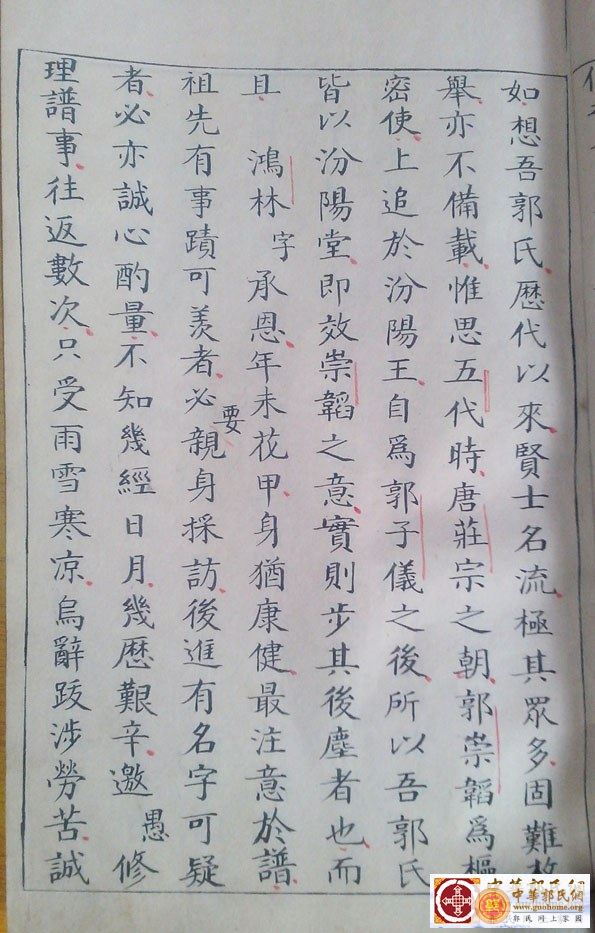 如想吾郭氏歷代以來賢士名流極其眾多固難枚
舉亦不備載惟思五代時唐莊宗之朝郭崇韜為樞
密使上追於汾陽王自爲郭子儀之後所以吾郭氏
皆以汾陽堂即效崇韜之意實則步其後塵者也而
且 鴻林字承恩年未花甲身猶康健最注意於譜
祖先有事蹟可羨者必要親身採訪後進有名字可疑
者必亦誠心酌量不知幾經日月幾歷艱辛邀愚修
理譜事往返數次只受雨雪寒凉烏辭跋涉勞苦誠
中華郭氏網
中華郭氏網
www.guohome.org
郭氏网上家園